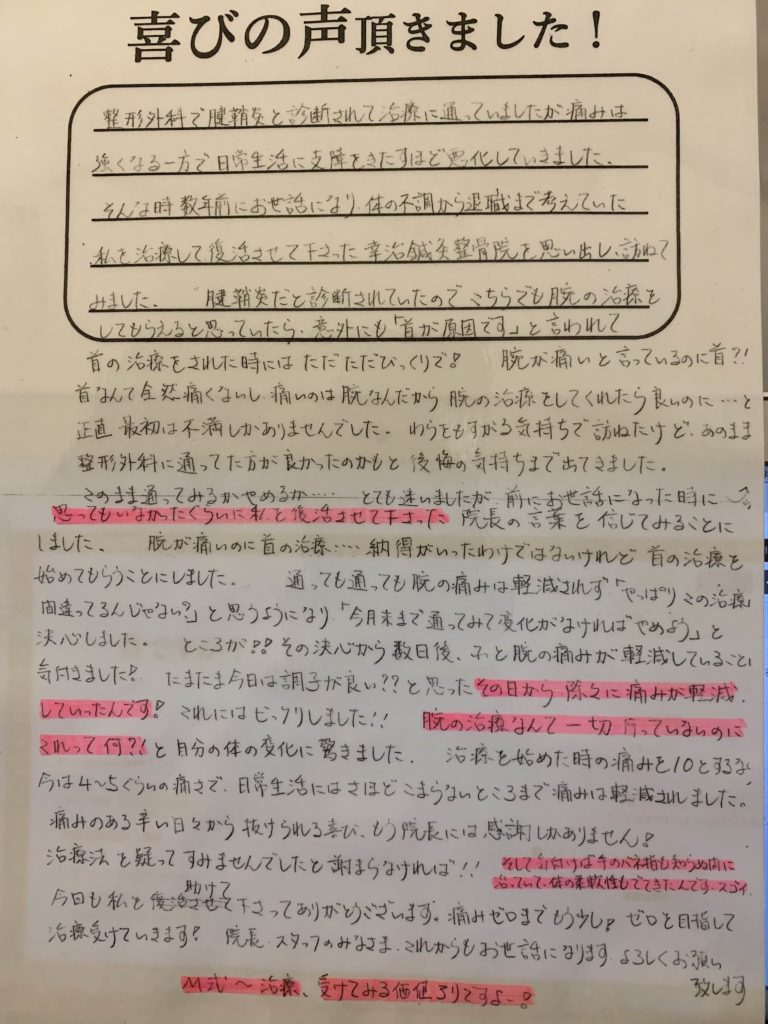 喜びの声頂きました!
整形外科で腱鞘炎と診断されて治療に通っていましたが痛みは
強くなる一方で日常生活に支障をきたすほど悪化していきました。
そんな時数年前にお世話になり、体の不調から退職まで考えていた
私を治療して復活させて下さった幸治鍼灸整骨院を思い出し、訪ねて
みました。 腱鞘炎だと診断されていたのでこちらでも腕の治療を
してもらえると思っていたら、意外にも「首が原因です」と言われて
首の治療をされた時にはただただびっくりで! 腕が痛いと言っているのに首?!
首なんて全然痛くないし、痛いのは腕なんだから腕の治療をしてくれたら良いのに…と
正直最初は不満しかありませんでした。わらをもすがる気持ちで訪ねたけど、あのまま
整形外科に通ってた方が良かったのかもと後悔の気持ちまで出てきました。
このまま通ってみるかやめるか…… とても迷いましたが、前にお世話になった時に
思ってもいなかったぐらいに私を復活させて下さった院長の言葉を信じてみることに
しました。 腕が痛いのに首の治療…. 納得がいったわけではないけれど首の治療を
始めてもらうことにしました。 通っても通っても腕の痛みは軽減されず「やっぱりこの治療
間違ってるんじゃない?」と思うようになり、「今月末まで通ってみて変化がなければやめよう」と
決心しました。 ところが!!その決心から数日後、ふっと腕の痛みが軽減していることに
気付きました! たまたま今日は調子が良い??と思ったその日から除々に痛みが軽減
していったんです! これにはビックリしました!! 腕の治療なんて一切行っていないのに
これって何?!と自分の体の変化に驚きました。 治療を始めた時の痛みを10とするなら
今は4〜5ぐらいの痛さで、日常生活にはさほどこまらないところまで痛みは軽減されました。
痛みのある辛い日々から抜けられる喜び、もう院長には感謝しかありません!
治療法を疑ってすみませんでしたと謝まらなければ!! そして気付けば手のバネ指も知らぬ内に
治っていて、体の柔軟性もでてきたんです。スゴイ
助けて
今日も私を復活させて下さってありがとうございます。痛みゼロまでもう少し!ゼロを目指して
治療受けていきます! 院長、スタッフのみなさま、これからもお世話になります よろしくお願い
致します
M式〜治療、受けてみる価値ありですよー!